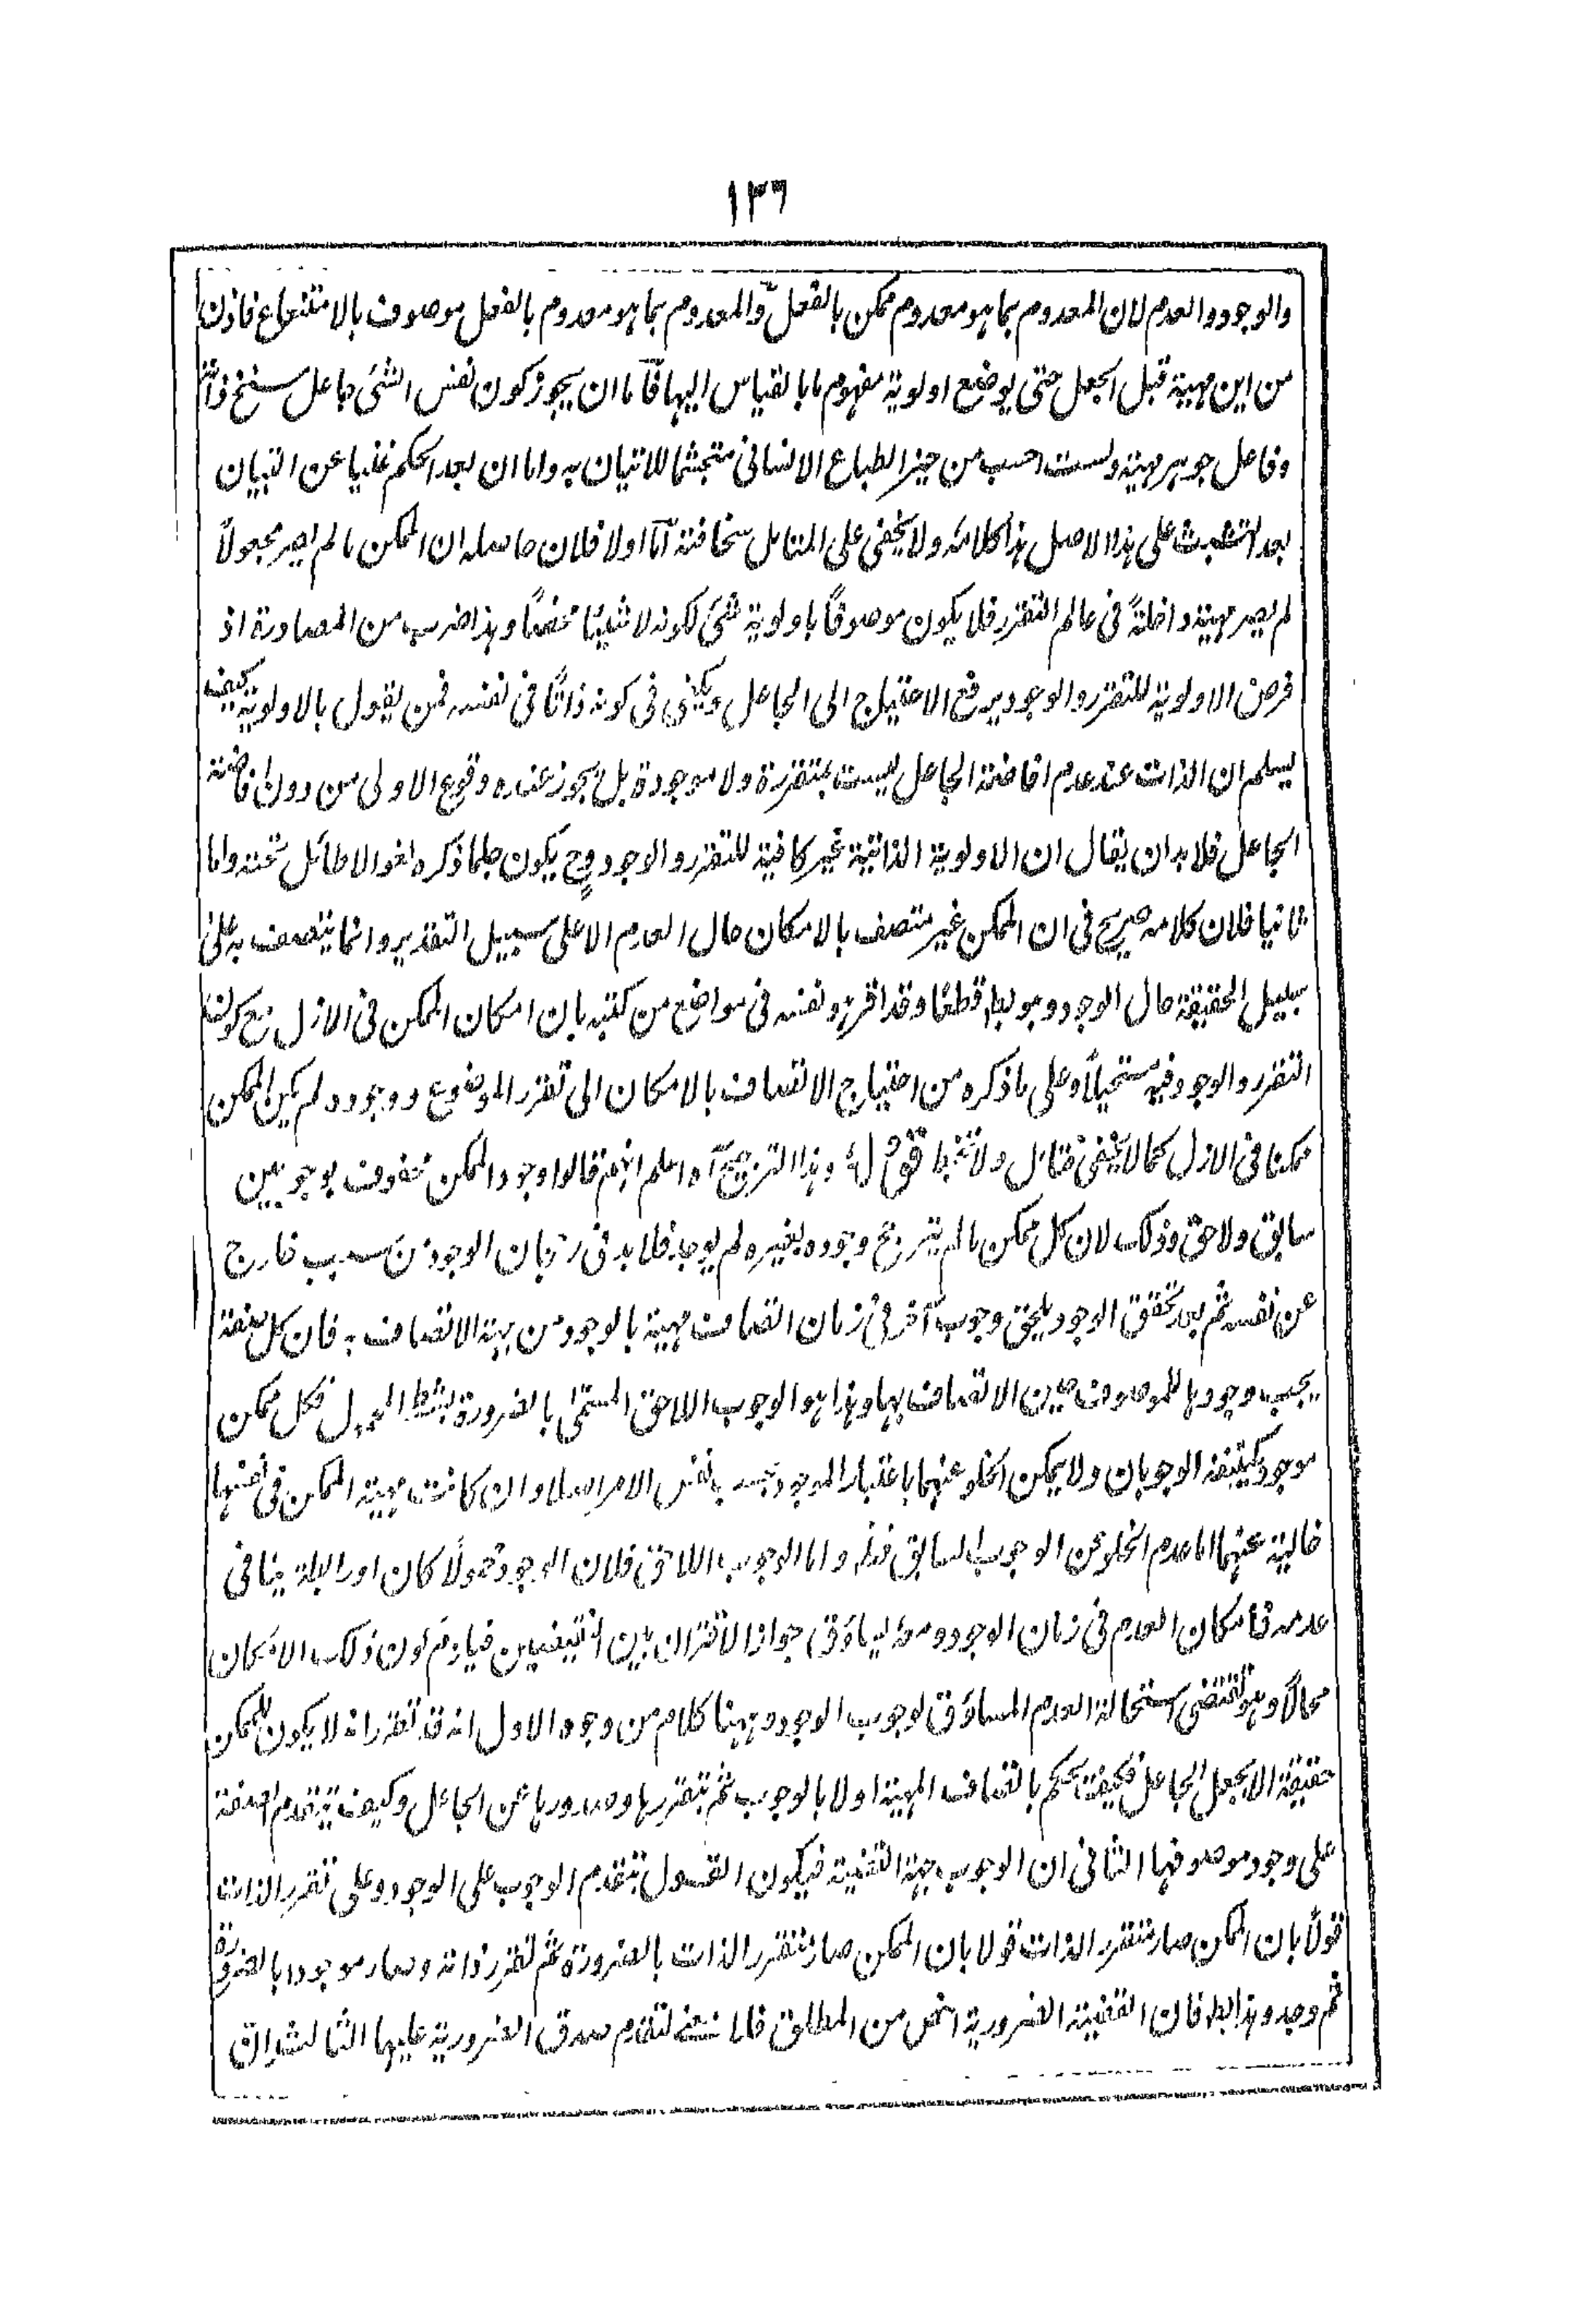 ١٣٦
والوجود والعدم لان المعدوم بما هو معدوم ممكن بالفعل والمعدوم بما هو معدوم بالفعل موصوف بالامتناع فاذن
من اين مهية قبل الجعل حتى يوضع اولوية مفهوم ما بالقياس اليها فاما ان يجوز كون نفس الشئ جاعل سنخ ذاته
وفاعل جوهر مهية ولست احسب من حيز الطباع الانسانى متجشما للاتيان به واما ان بعد الحكم غنيا عن التبيان
بعد التشبث على هذا الاصل هذا كلامه ولا يخفى على المتامل سخافته اما اولا فلان حاصله ان الممكن ما لم يصر مجعولاً
لم يصر مهية داخلةً فى عالم التقرر فلا يكون موصوفًا باولوية شئ لكونه لا شيئًا محضًا وهذا ضرب من المصادرة اذ
فرض الاولوية للتقرر والوجود يرفع الاحتياج الى الجاعل ويكفى فى كونه ذاتًا فى نفسه فمن يقول بالاولوية كيف
يسلم ان الذات عند عدم افاضة الجاعل ليست بمتقررة ولا موجودة بل يجوز عنده وقوع الاولى من دون افاضة
الجاعل فلا بد ان يقال ان الاولوية الذاتية غير كافية للتقرر والوجود وح يكون جلما ذكره لغوا لا طائل تحته واما
ثانيا فلان كلامه صريح فى ان الممكن غير متصف بالامكان حال العدم الا على سبيل التقدير وانما يتصف به على
سبيل الحقيقة حال الوجود وهو بط قطعًا وقد اقر هو نفسه فى مواضع من كتبه بان امكان الممكن فى الازل مع كون
التقرر والوجود فيه مستحيلًا وعلى ما ذكره من احتياج الاتصاف بالامكان الى تقرر الموضوع ووجوده لم يكن الممكن
ممكنا فى الازل كما لا يخفى فتامل ولا تخبط قوله وهذا الترجيح آه اعلم انهم قالوا وجود الممكن محفوف بوجوبين
سابق ولاحق وذلك لان كل ممكن ما لم يترجح وجوده بغيره لم يوجد فلا بد فى رجحان الوجود من سبب خارج
عن نفسه ثم بعد تحقق الوجود يلحق وجوب آخر فى زمان اتصاف مهية بالوجود من جهة الاتصاف به فان كل صفة
يجب وجودها للموصوف حين الاتصاف بها وهذا هو الوجوب اللاحق المسمى بالضرورة بشرط المحمول فكل ممكن
موجود يكتنفه الوجوبان ولا يمكن الخلو عنهما باعتبار الوجود بحسب نفس الامر اصلا وان كانت مهية الممكن فى نفسها
خالية عنهما اما عدم الخلو عن الوجوب السابق فذاك واما الوجوب اللاحق فلان الوجود محمولًا كان او رابطة ينافى
عدمه فامكان العدم فى زمان الوجود ومعه يساوق جواز الاقتران بين النقيضين فيلزم كون ذلك الامكان
محالًا وهو يقتضى استحالة العدم المساوق لوجوب الوجود وههنا كلام من وجوه الاول انه قد تقرر انه لا يكون للممكن
حقيقة الا بجعل الجاعل فكيف يحكم باتصاف المهية اولا بالوجوب ثم بتقررها وصدورها عن الجاعل وكيف يتقدم الصفة
على وجود موصوفها الثانى ان الوجوب جهة القضية فيكون القول بتقدم الوجوب على الوجود وعلى تقرر الذات
قولًا بان الممكن صار متقرر الذات قولا بان الممكن صار متقرر الذات بالضرورة ثم تقرر ذاته وصار موجودا بالضرورة
ثم وجد وهذا بط فان القضية الضرورية اخص من المطلق فلا معنى لتقدم صدق الضرورية عليها الثالث ان